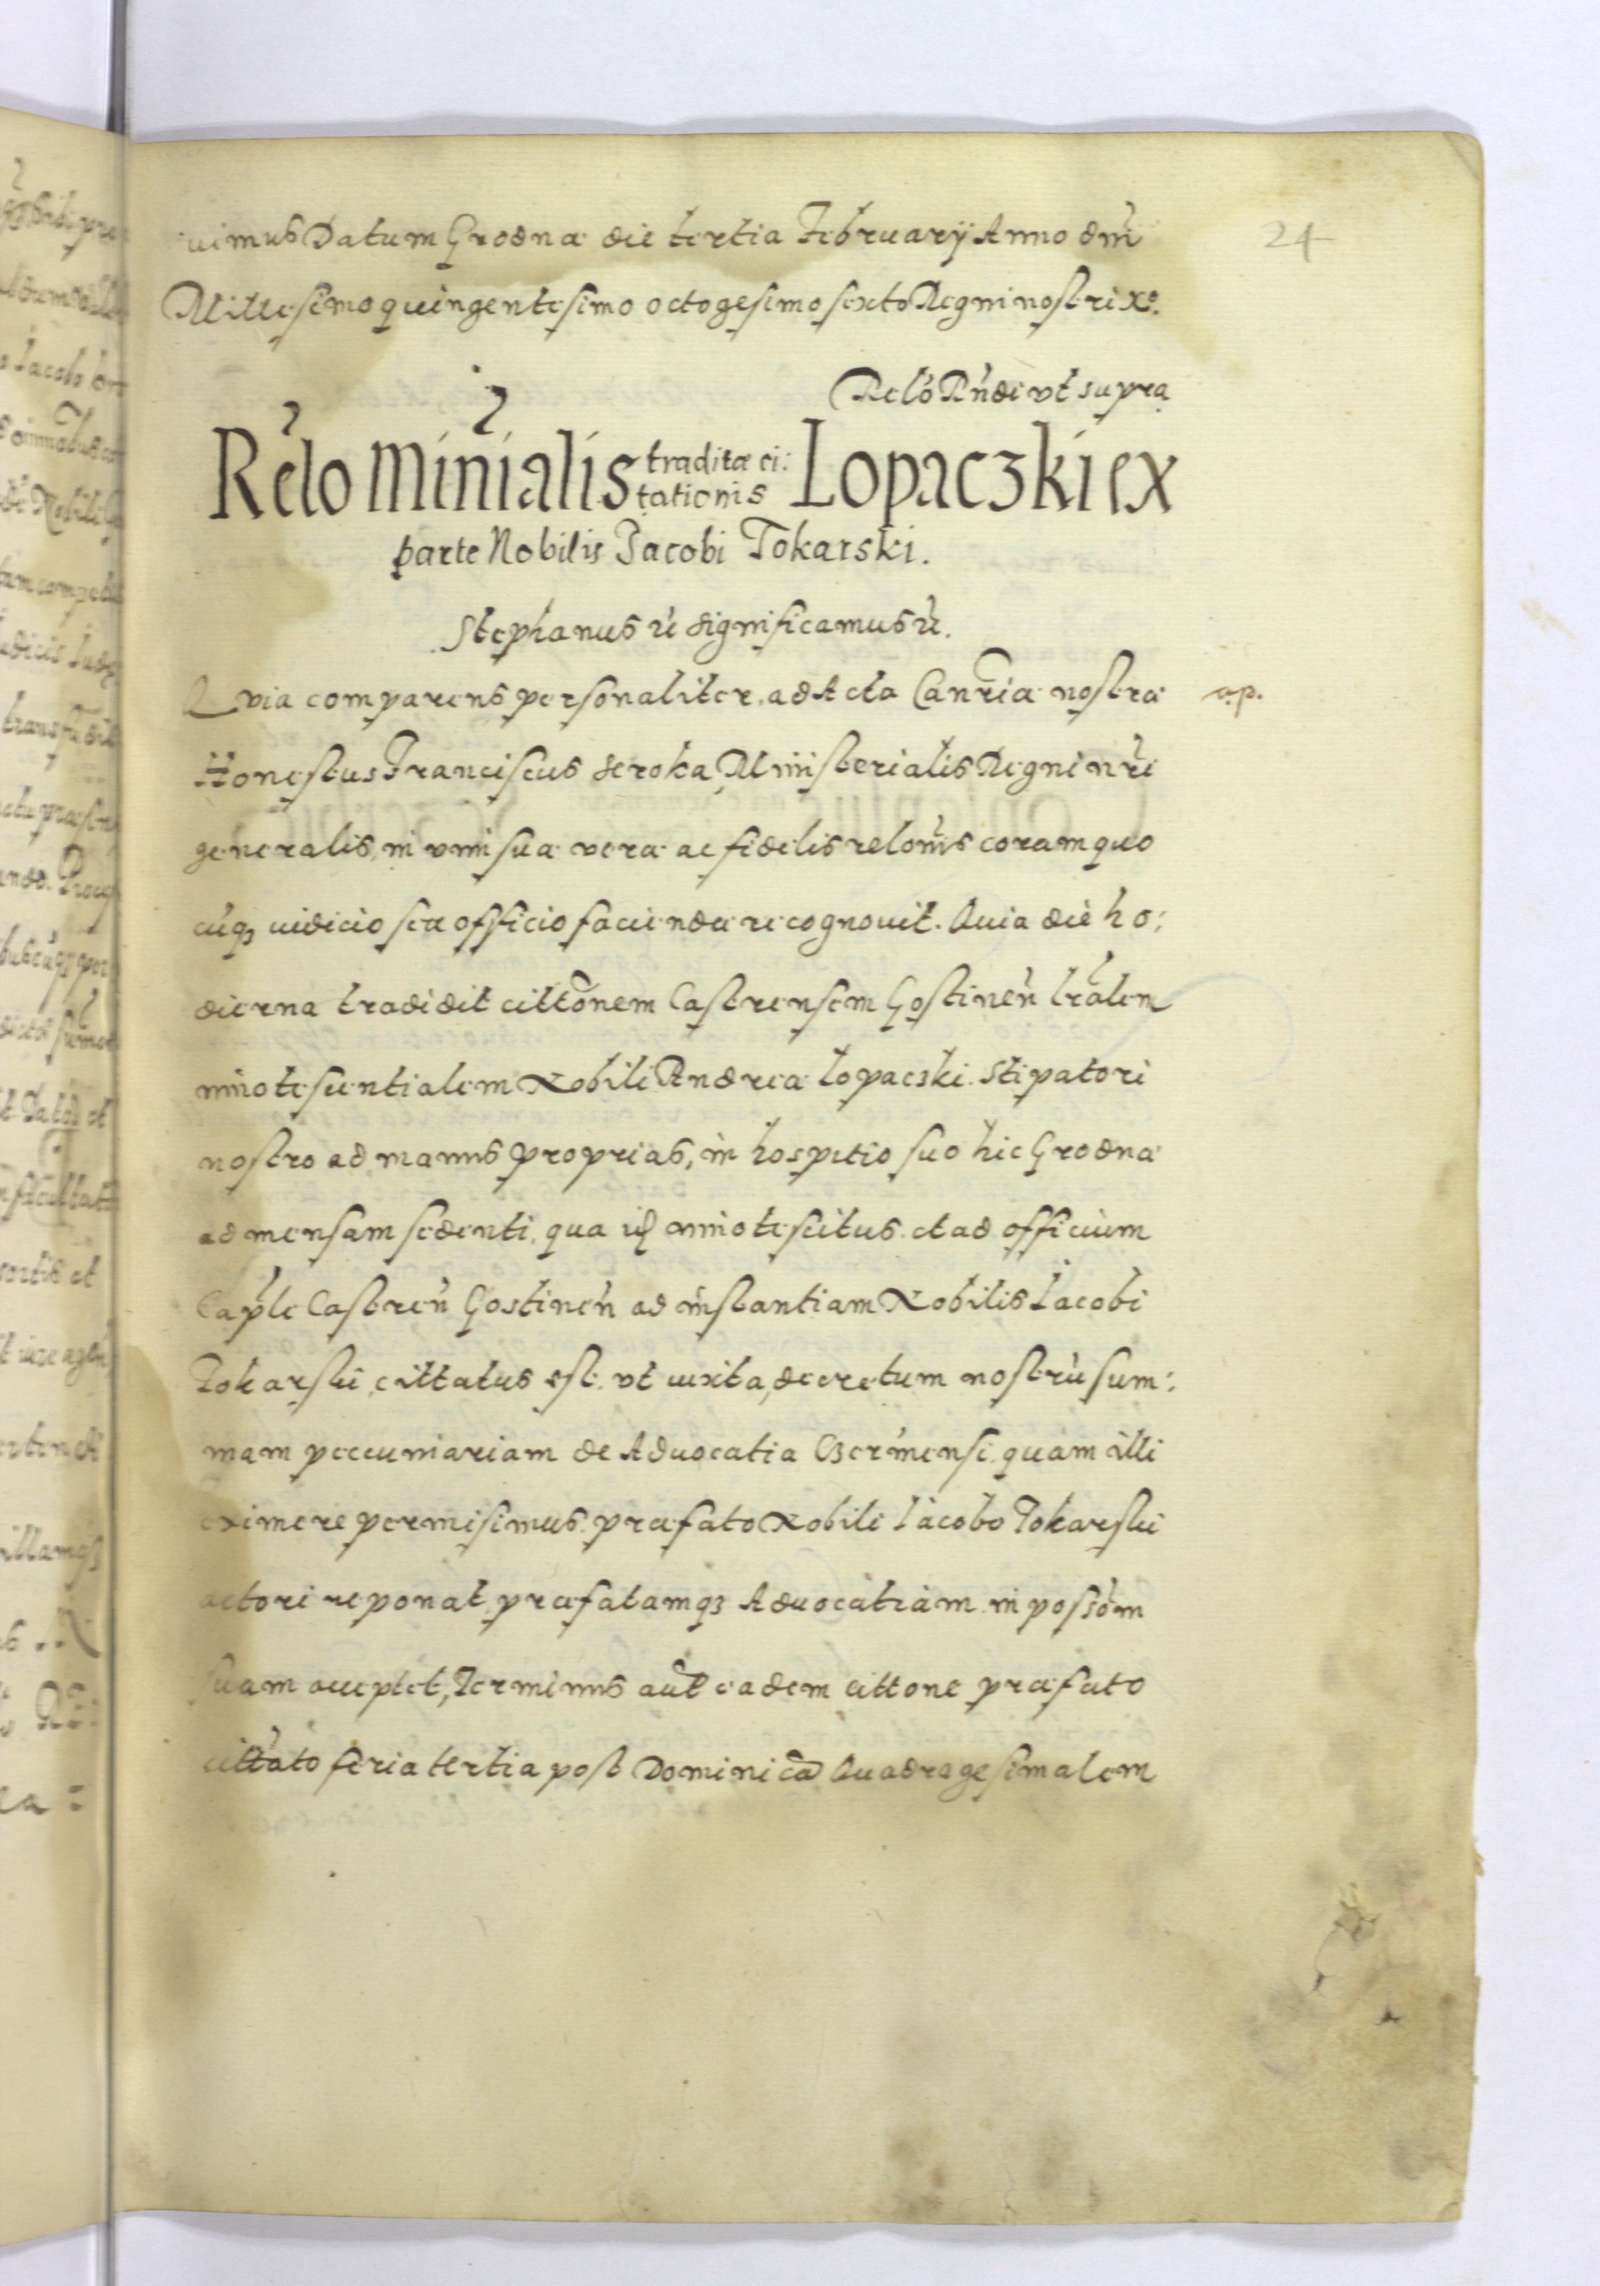 uimus Datum Grodnæ die tertia Februarÿ Anno dm̃i
Millesimo quingentesimo octogesimo sexto Regni nostri Xº.
24
Relõ Rñdi vt supra
Rel̃o Min̄ialis traditæ ci: Lopaczki ex
tationis
parte Nobilis Jacobi Tokarski.
Stephanus etc significamus etc.
Quia comparens personaliter ad Acta Canr̃iæ nostræ
a.p.
Honestus Franciscus Seroka Ministerialis Regni nr̃i
generalis, in vim suæ veræ ac fidelis relõnis coram quo
cũq3 iudicio seu officio faciendæ recognouit. Quia die ho:
dierna tradidit cittõnem Castrensem Gostineñ lrãlem
innotescentialem Nobili Andreæ Lopacski Stipatori
nostro ad manus proprias, in hospitio suo hic Grodnæ
ad mensam sedenti, qua innotescitus et ad officium
Cap̃le Castreñ Gostineñ ad instantiam Nobilis Jacobi
Tokarski, cittatus est. vt iuxta, decretum nostrũ sum:
mam peccuniariam de Aduocatia Czermensi quam illi
eximere permisimus præfato Nobili Jacobo Tokarski
actori reponat præfatamq3 Aduocatiam in possõm
suam acceptet, Terminus aũt eadem cittone præfato
cittato feria tertia post Dominicã Quadragesimalem